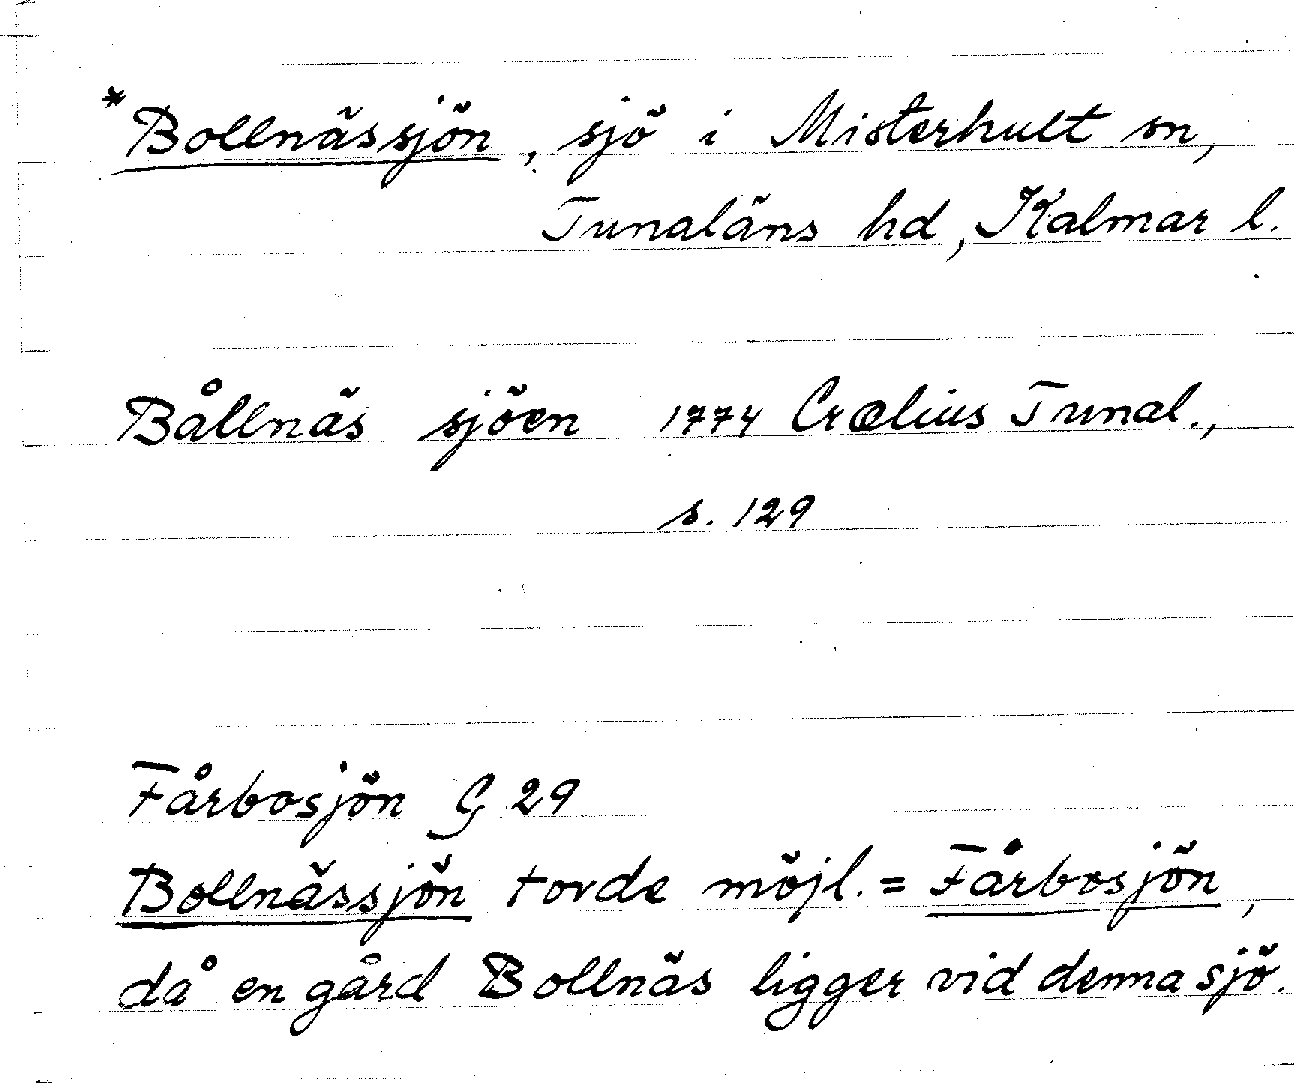 *Bollnässjön, sjö i Misterhult sn,
Tunaläns hd, Kalmar l.
Bållnäs sjöen 1774 Crælius Tunal.,
s. 129
Fårbosjön G 29
Bollnässjön torde möjl. = Fårbosjön,
då en gård Bollnäs ligger vid denna sjö.